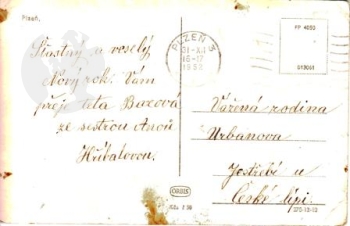 Plzeň.
Šťastný a veselý
Nový rok. Vám
přeje teta Boxová
ze sestrou Anou
Hříbalovou.
PLZEŇ
31.XII
16-17
FP 4850
013061
Vážená rodina
Urbanova
Jestřebí u
České lípi.
ORBIS